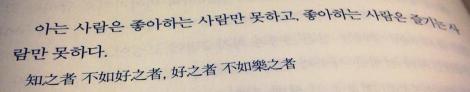 아는 사람은 좋아하는 사람만 못하고, 좋아하는 사람은 즐기는 사
람만 못하다.
知之者 不如好之者, 好之者 不如樂之者